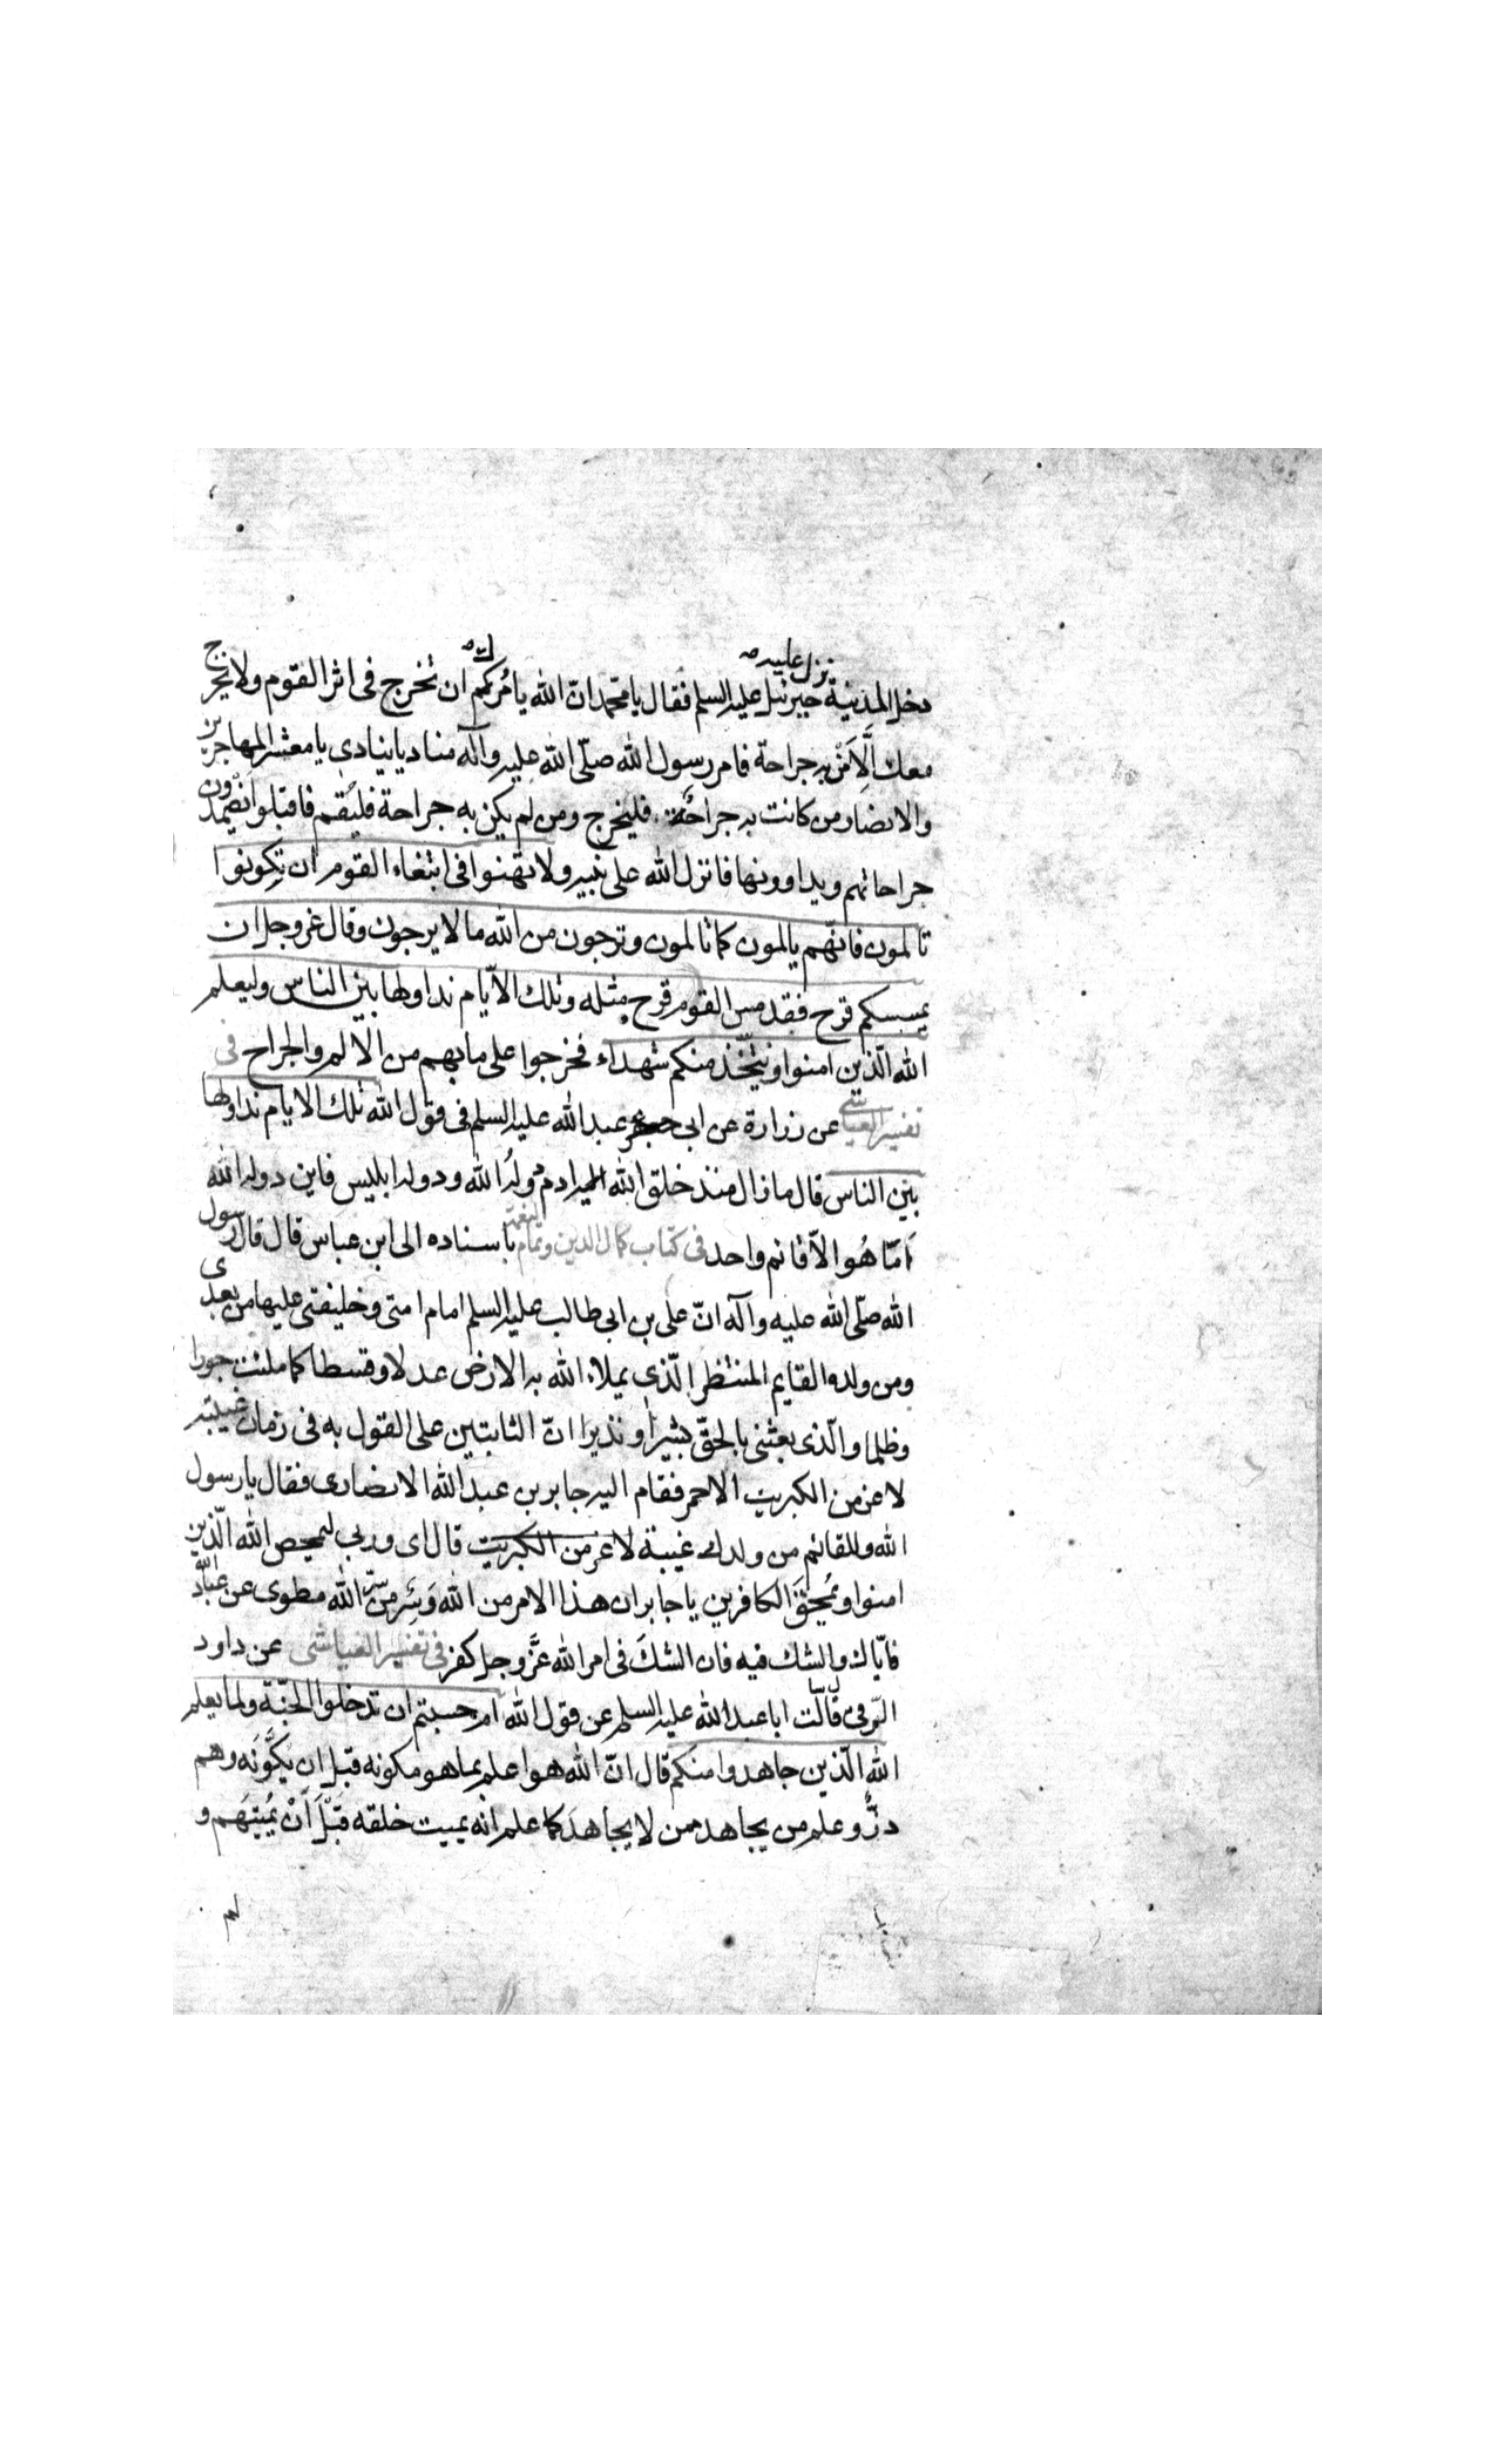 دخل المدينة نزل عليه جبرئيل عليه السلم فقال يا محمد ان الله يامرك ان تخرج فى اثر القوم ولا يخرج
معك الّا من به جراحة فامر رسول الله صلّى الله عليه وآله مناديا ينادى يا معشر المهاجرين
والانصار من كانت به جراحة فليخرج ومن لم يكن به جراحة فليقم فاقبلوا يضمدون
جراحاتهم ويداوونها فانزل الله على نبيه ولا تهنوا فى ابتغاء القوم ان تكونوا
تالمون فانّهم يالمون كما تالمون وترجون من الله ما لا يرجون وقال عز وجل ان
يمسسكم قرح فقد مس القوم قرح مثله وتلك الايّام نداولها بين الناس وليعلم
الله الّذين امنوا ويتّخذ منكم شهداء فخرجوا على ما بهم من الالم والجراح فى
تفسير العياشى عن زرارة عن ابى عبد الله عليه السلم فى قول الله تلك الايام نداولها
بين الناس قال ما زال منذ خلق الله ادم دولة الله ودولة ابليس فاين دولة الله
اَمّا هُو الّا قائم واحد فى كتاب كمال الدين وتمام النعمة باسناده الى ابن عباس قال قال رسول
الله صلّى الله عليه وآله انّ على بن ابى طالب عليه السلم امام امتى وخليفتى عليها من بعدى
ومن ولده القايم المنتظر الّذى يملاء الله به الارض عدلا وقسطا كما ملئت جورا
وظلما والّذى بعثنى بالحقّ بشيرا ونذيرا انّ الثابتين على القول به فى زمان غيبته
لاعز من الكبريت الاحمر فقام اليه جابر بن عبد الله الانصارى فقال يا رسول
الله وللقائم من ولدك غيبة قال اى وربى ليمحص الله الّذين
امنوا ويُمحق الكافرين يا جابر ان هذا الامر من الله وسر من سرّ الله مطوى عن عباد الله
فايّاك والشك فيه فان الشكَ فى امر الله عزَّ وجل كفر فى تفسير العياشى عن داود
الرّقى قال سالت ابا عبد الله عليه السلم عن قول الله ام حسبتم ان تدخلوا الجنّة ولما يعلم
الله الّذين جاهدوا منكم قال انّ الله هو اعلم بما هو مكونه قبل ان يكوّنه وهم
ذرٌّ وعلم من يجاهد ممن لا يجاهد كما علم انه يميت خلقه قَبْلَ اَنْ يُميتَهم و